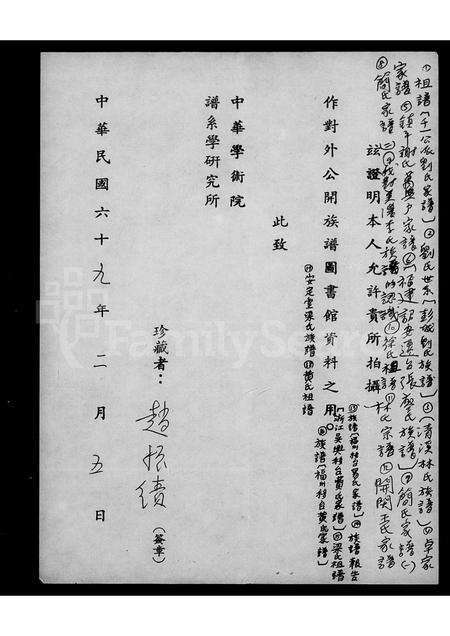 ①祖譜(千一公衣劉氏家譜)②劉氏世系(彭城劉氏族譜)③清溪林氏族譜④卓家
家譜⑤鎮平謝氏 戶家譜⑥福建詔安遷台張廖氏族譜⑦簡氏家譜(一)
⑧簡氏家譜(二)⑨ 李氏族譜的認識⑩徐氏祖譜 林氏宗譜 開閩王氏家譜
茲證明本人允許貴所拍攝
族譜(福州社台 氏家譜) 族譜報告
(浙江吳興 台黃氏家譜) 梁氏祖譜
族譜(福州社台黃氏家譜)
作對外公開族譜圖書館資料之用。
安定堂梁氏族譜 黃氏祖譜
此致
中華學術院
譜系學研究所
珍藏者:趙振績(簽章)
中華民國六十九年二月五日
FamilySearch